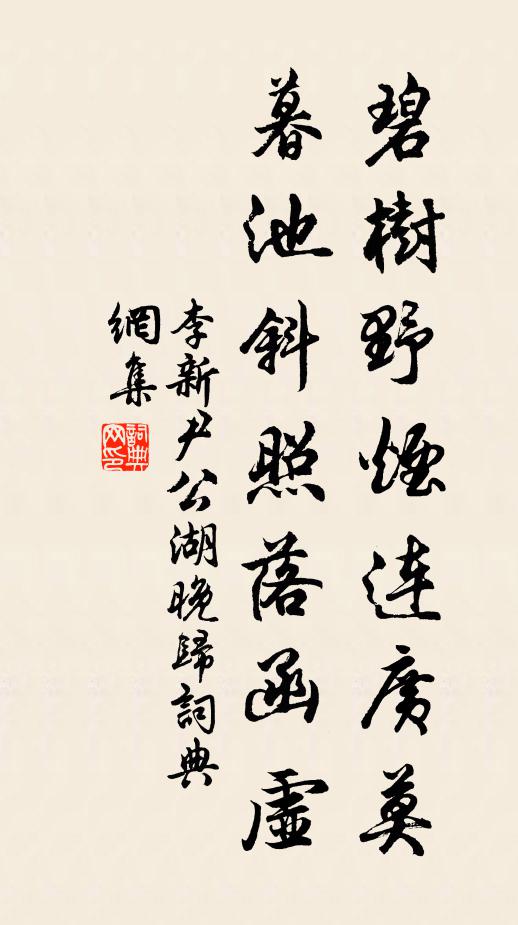 碧樹野煙連廣莫
暮池斜照落函虛
李新尹公湖晚歸詞典
網集
詞典網印